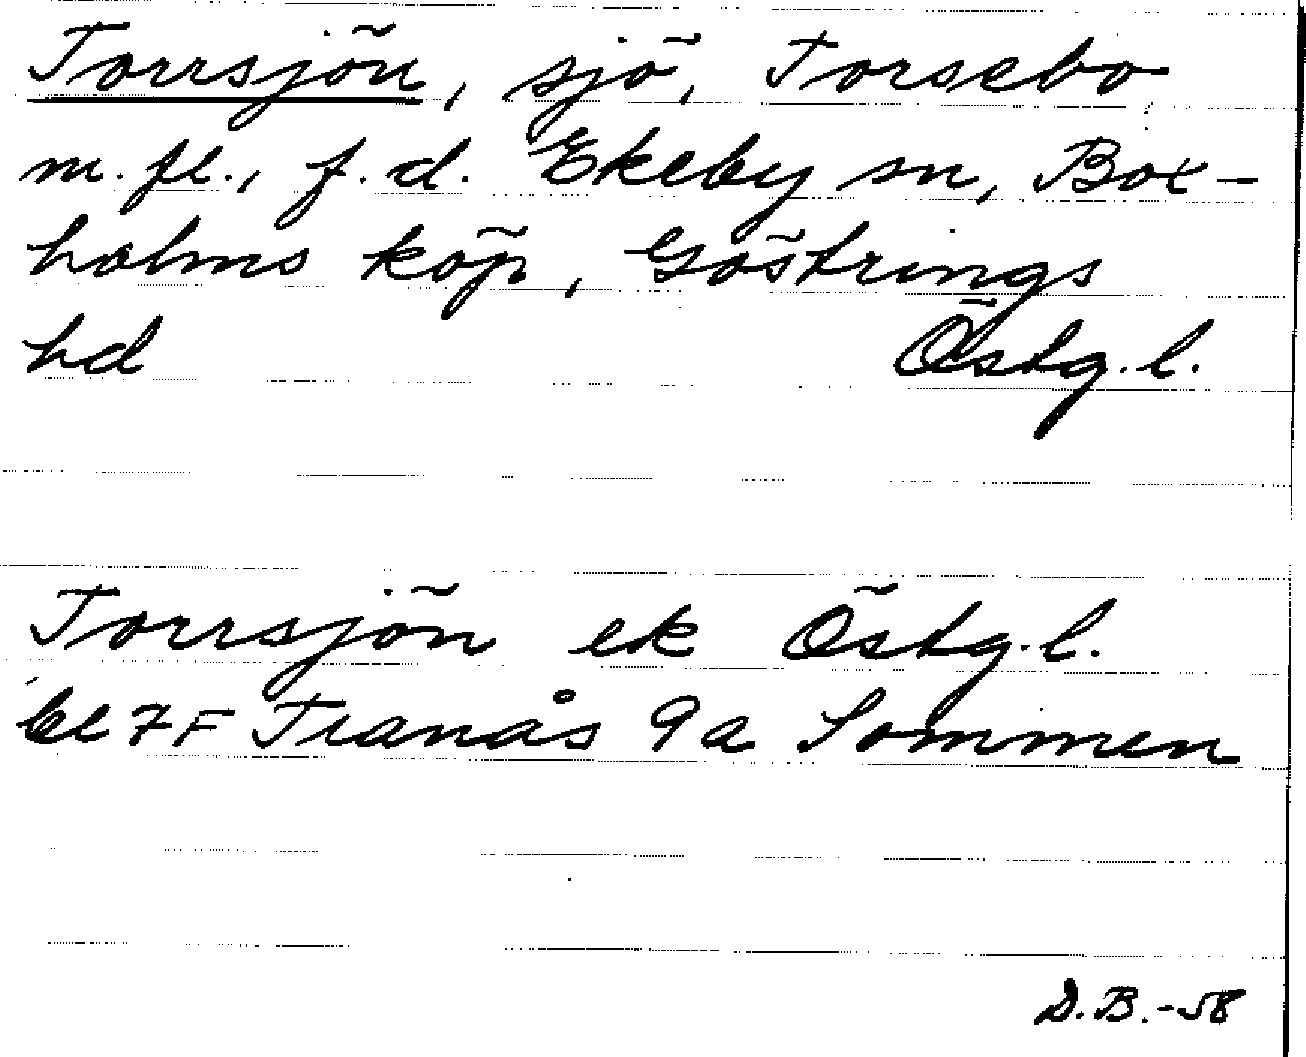 Torrsjön, sjö, Torsebo
m. fl., f. d. Ekeby sn, Box-
holms köp, Göstrings
hd Östg. l.
Torrsjön ek Östg. l.
bl 7F Tranås 9a Sommen
D.B.-58